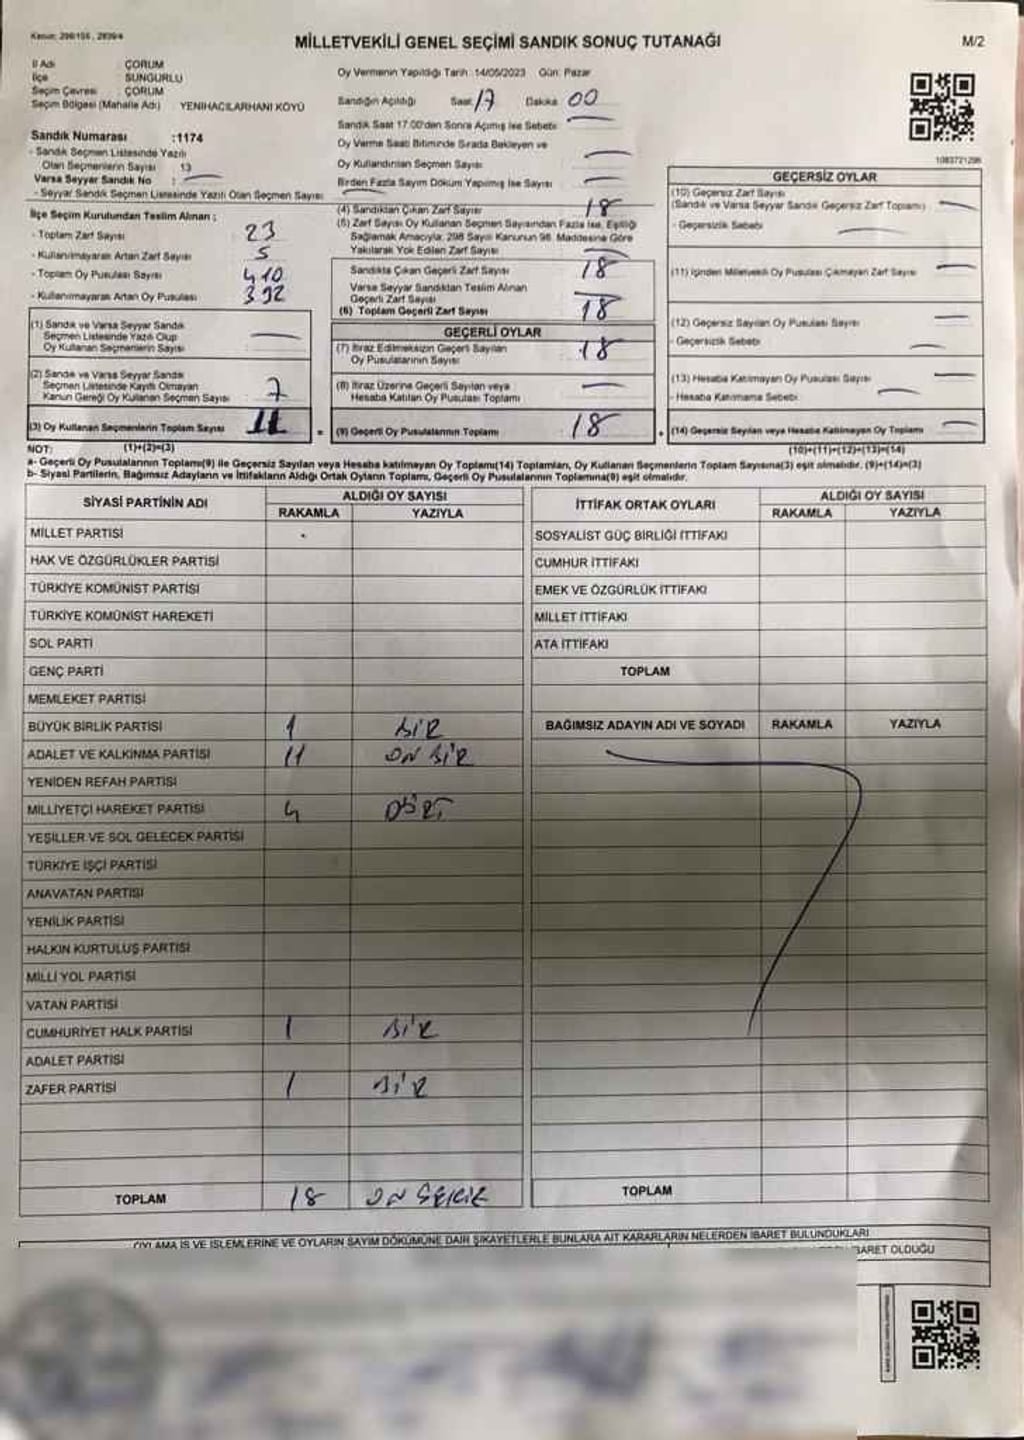 Kanun: 298/105, 2839/4
MİLLETVEKİLİ GENEL SEÇİMİ SANDIK SONUÇ TUTANAĞI
M/2
İl Adı : ÇORUM
İlçe : SUNGURLU
Seçim Çevresi : ÇORUM
Seçim Bölgesi (Mahalle Adı) : YENİHACILARHANI KÖYÜ
Sandık Numarası :1174
- Sandık Seçmen Listesinde Yazılı
Olan Seçmenlerin Sayısı : 13
Varsa Seyyar Sandık No : —
- Seyyar Sandık Seçmen Listesinde Yazılı Olan Seçmen Sayısı :
İlçe Seçim Kurulundan Teslim Alınan ;
- Toplam Zarf Sayısı 23
- Kullanılmayarak Artan Zarf Sayısı 5
- Toplam Oy Pusulası Sayısı 410
- Kullanılmayarak Artan Oy Pusulası 392
(1) Sandık ve Varsa Seyyar Sandık
Seçmen Listesinde Yazılı Olup
Oy Kullanan Seçmenlerin Sayısı —
(2) Sandık ve Varsa Seyyar Sandık
Seçmen Listesinde Kayıtlı Olmayan
Kanun Gereği Oy Kullanan Seçmen Sayısı 7
(3) Oy Kullanan Seçmenlerin Toplam Sayısı 11
Oy Vermenin Yapıldığı Tarih :14/05/2023 Gün: Pazar
Sandığın Açıldığı Saat: 17 Dakika: 00
Sandık Saat 17.00'den Sonra Açılmış İse Sebebi: —
Oy Verme Saati Bitiminde Sırada Bekleyen ve
Oy Kullandırılan Seçmen Sayısı —
Birden Fazla Sayım Döküm Yapılmış İse Sayısı —
(4) Sandıktan Çıkan Zarf Sayısı 18
(5) Zarf Sayısı Oy Kullanan Seçmen Sayısından Fazla İse, Eşitliği
Sağlamak Amacıyla; 298 Sayılı Kanunun 98. Maddesine Göre
Yakılarak Yok Edilen Zarf Sayısı —
Sandıkta Çıkan Geçerli Zarf Sayısı 18
Varsa Seyyar Sandıktan Teslim Alınan
Geçerli Zarf Sayısı —
(6) Toplam Geçerli Zarf Sayısı 18
GEÇERLİ OYLAR
(7) İtiraz Edilmeksizin Geçerli Sayılan
Oy Pusulalarının Sayısı 18
(8) İtiraz Üzerine Geçerli Sayılan veya
Hesaba Katılan Oy Pusulası Toplamı —
= (9) Geçerli Oy Pusulalarının Toplamı 18
1083721298
GEÇERSİZ OYLAR
(10) Geçersiz Zarf Sayısı
(Sandık ve Varsa Seyyar Sandık Geçersiz Zarf Toplamı) —
- Geçersizlik Sebebi —
(11) İçinden Milletvekili Oy Pusulası Çıkmayan Zarf Sayısı —
(12) Geçersiz Sayılan Oy Pusulası Sayısı —
- Geçersizlik Sebebi —
(13) Hesaba Katılmayan Oy Pusulası Sayısı —
- Hesaba Katılmama Sebebi —
+ (14) Geçersiz Sayılan veya Hesaba Katılmayan Oy Toplamı —
NOT: (1)+(2)=(3) (10)+(11)+(12)+(13)=(14)
a- Geçerli Oy Pusulalarının Toplamı(9) ile Geçersiz Sayılan veya Hesaba katılmayan Oy Toplamı(14) Toplamları, Oy Kullanan Seçmenlerin Toplam Sayısına(3) eşit olmalıdır. (9)+(14)=(3)
b- Siyasi Partilerin, Bağımsız Adayların ve İttifakların Aldığı Ortak Oyların Toplamı, Geçerli Oy Pusulalarının Toplamına(9) eşit olmalıdır.
SİYASİ PARTİNİN ADI ALDIĞI OY SAYISI
RAKAMLA YAZIYLA
MİLLET PARTİSİ
HAK VE ÖZGÜRLÜKLER PARTİSİ
TÜRKİYE KOMÜNİST PARTİSİ
TÜRKİYE KOMÜNİST HAREKETİ
SOL PARTİ
GENÇ PARTİ
MEMLEKET PARTİSİ
BÜYÜK BİRLİK PARTİSİ 1 BİR
ADALET VE KALKINMA PARTİSİ 11 ON BİR
YENİDEN REFAH PARTİSİ
MİLLİYETÇİ HAREKET PARTİSİ 4 DÖRT
YEŞİLLER VE SOL GELECEK PARTİSİ
TÜRKİYE İŞÇİ PARTİSİ
ANAVATAN PARTİSİ
YENİLİK PARTİSİ
HALKIN KURTULUŞ PARTİSİ
MİLLİ YOL PARTİSİ
VATAN PARTİSİ
CUMHURİYET HALK PARTİSİ 1 BİR
ADALET PARTİSİ
ZAFER PARTİSİ 1 BİR
TOPLAM 18 ON SEKİZ
İTTİFAK ORTAK OYLARI ALDIĞI OY SAYISI
RAKAMLA YAZIYLA
SOSYALİST GÜÇ BİRLİĞİ İTTİFAKI
CUMHUR İTTİFAKI
EMEK VE ÖZGÜRLÜK İTTİFAKI
MİLLET İTTİFAKI
ATA İTTİFAKI
TOPLAM
BAĞIMSIZ ADAYIN ADI VE SOYADI RAKAMLA YAZIYLA
TOPLAM
OYLAMA İŞ VE İŞLEMLERİNE VE OYLARIN SAYIM DÖKÜMÜNE DAİR ŞİKAYETLERLE BUNLARA AİT KARARLARIN NELERDEN İBARET BULUNDUKLARI
İBARET OLDUĞU